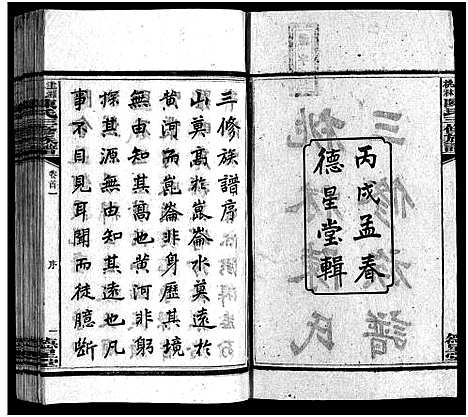 丙戌孟春
德星堂輯
三修族譜序
山莫高於崑崙水莫遠於
黄河而崑崙非身歷其境
無由知其高也黄河非躬
探其源無由知其遠也凡
事不目見耳聞而徒臆斷
卷首一
序